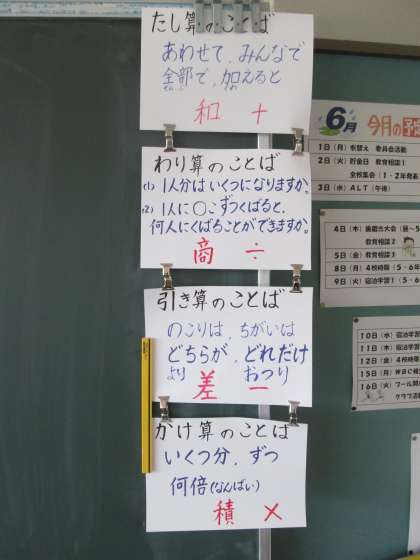 たし算のことば
あわせて、みんなで
全部で、加えると
ぜんぶ
和 +
わり算のことば
(1) 1人分はいくつになりますか。
(2) 1人に○こずつくばると、
何人にくばることができますか。
商 ÷
引き算のことば
のこりは、ちがいは
どちらが、どれだけ
より おつり
差 −
かけ算のことば
いくつ分、ずつ
何倍(なんばい)
積 ×
6月 今月の予
1日(月)衣替え 委員会活動
2日(火)貯金日 教育相談1
全校集会(1・2年発表
3日(水)ALT(午後)
4日(木)歯磨き大会
教育相談2
5日(金)教育相談3
8日(月)4校時限(5・6年
9日(火)宿泊学習1(5・6
10日(水)宿泊学習
11日(木)宿泊学習
12日(金)4校時限
15日(月)
16日(火)プール開
クラブ活